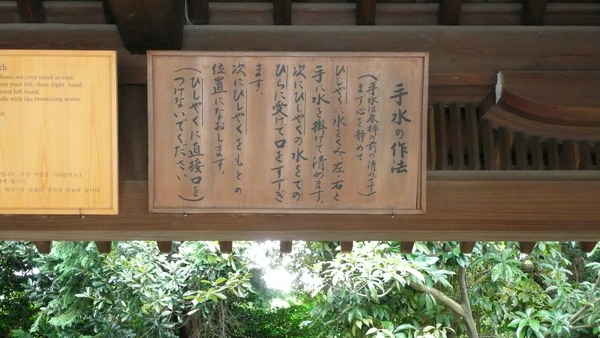 手水の作法
(手水は参拝の前の清めです)
まず心を静めて
ひしゃくに水をくみ左右と
手に水を掛けて清めます。
次にひしゃくの水をての
ひらに受けて口をすすぎ
ます。
次にひしゃくをもとの
位置になおします。
(ひしゃくに直接口を
つけないでください)
set your mind at ease.
your left, then right hand
your left hand.
with the remaining water.